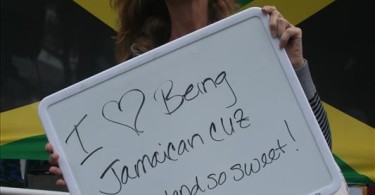 I ♡ Being
Jamaican CUZ
and so sweet!